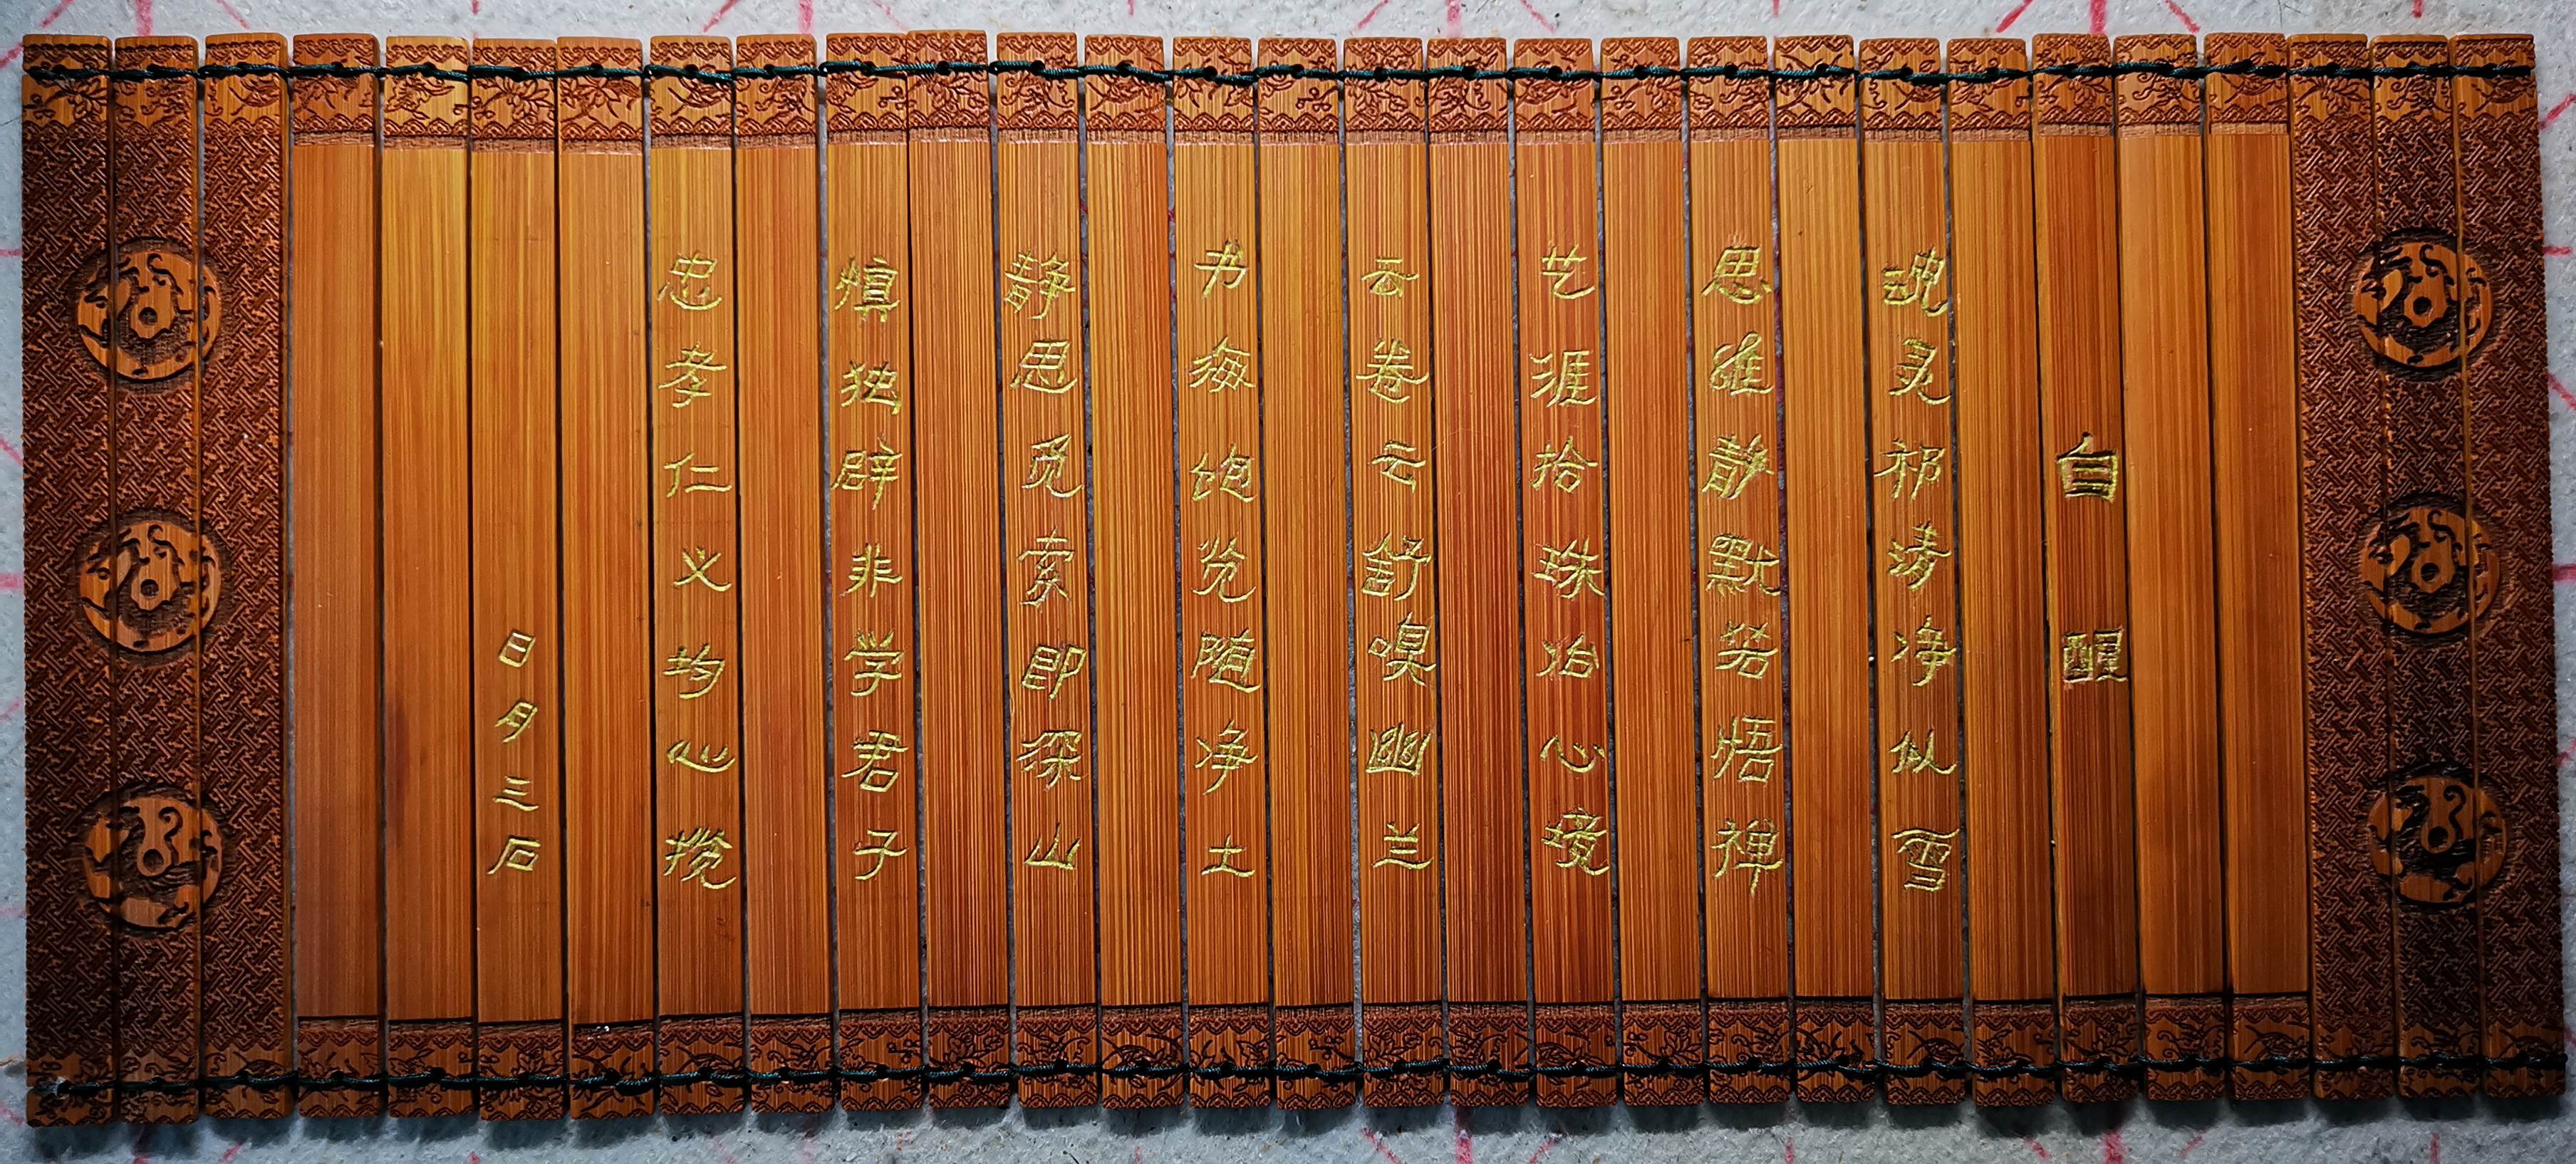 自醒
魂灵祁涛净似雪
思维静默若悟禅
艺涯拾珠冶心境
云卷云舒嗅幽兰
书海饱览随净土
静思觅索即深山
慎独辟非学君子
忠孝仁义均心揽
日月三石